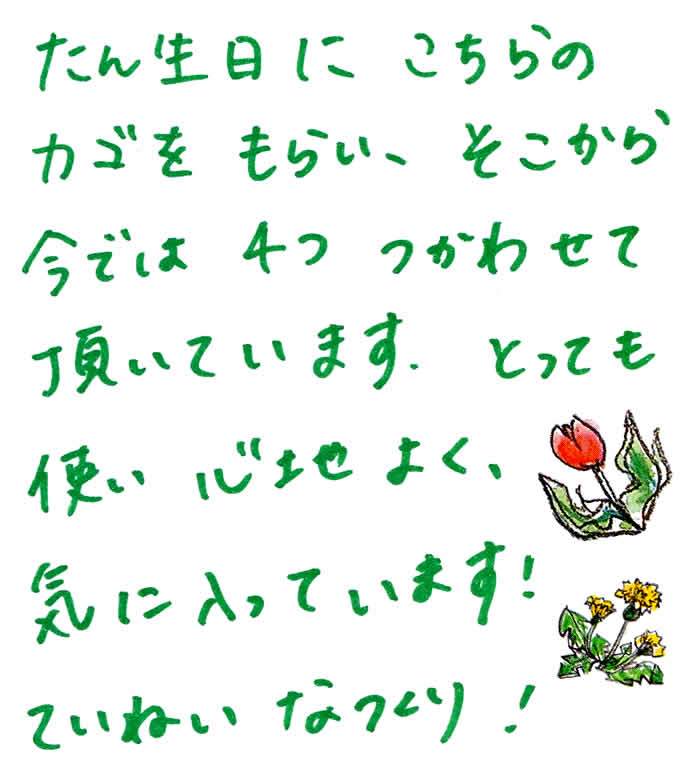 たん生日に こちらの
カゴを もらい、そこから
今では 4つ つかわせて
頂いています. とっても
使い心地よく、
気に入っています!
ていねいなつくり!